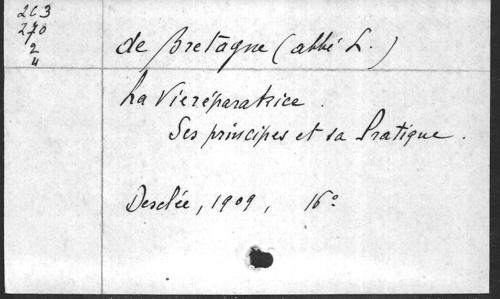 263
270
2
4
de Bretagne (abbé L.)
La Vie réparatrice.
Ses principes et sa Pratique.
Desclée, 1909, 16°